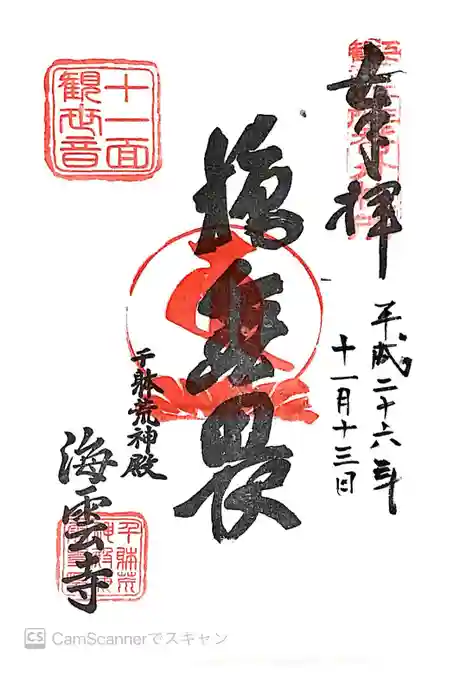 奉拝
平成二十六年
十一月十三日
施無畏
十一面
観世音
千躰荒神殿
海雲寺
CS CamScannerでスキャン